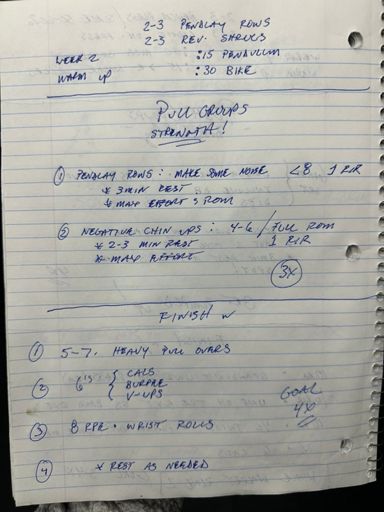 2-3 PENDLAY ROWS
2-3 REV. SHRUGS
WEEK 2 :15 PENDULUM
WARM UP :30 BIKE
PULL GROUPS
STRENGTH!
① PENDLAY ROWS: MAKE SOME NOISE <8 1 RIR
* 3 MIN REST
* MAX EFFORT & ROM
② NEGATIVE CHIN UPS: 4-6 / FULL ROM
* 2-3 MIN REST 1 RIR
* MAX EFFORT
3X
FINISH W
① 5-7. HEAVY PULL OVERS
② 6'S { CALS
BURPEE
V-UPS
GOAL
4X
③ 8 RPE · WRIST ROLLS
④ * REST AS NEEDED